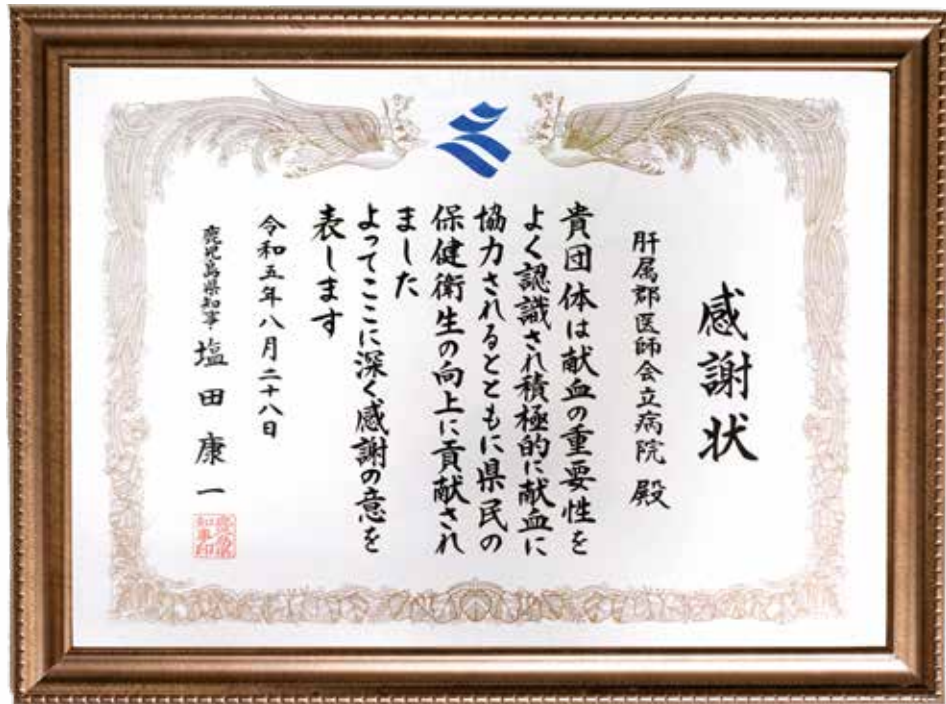 感謝状
肝属郡医師会立病院 殿
貴団体は献血の重要性を
よく認識され積極的に献血に
協力されるとともに県民の
保健衛生の向上に貢献され
ました
よってここに深く感謝の意を
表します
令和五年八月二十八日
鹿児島県知事 塩田康一